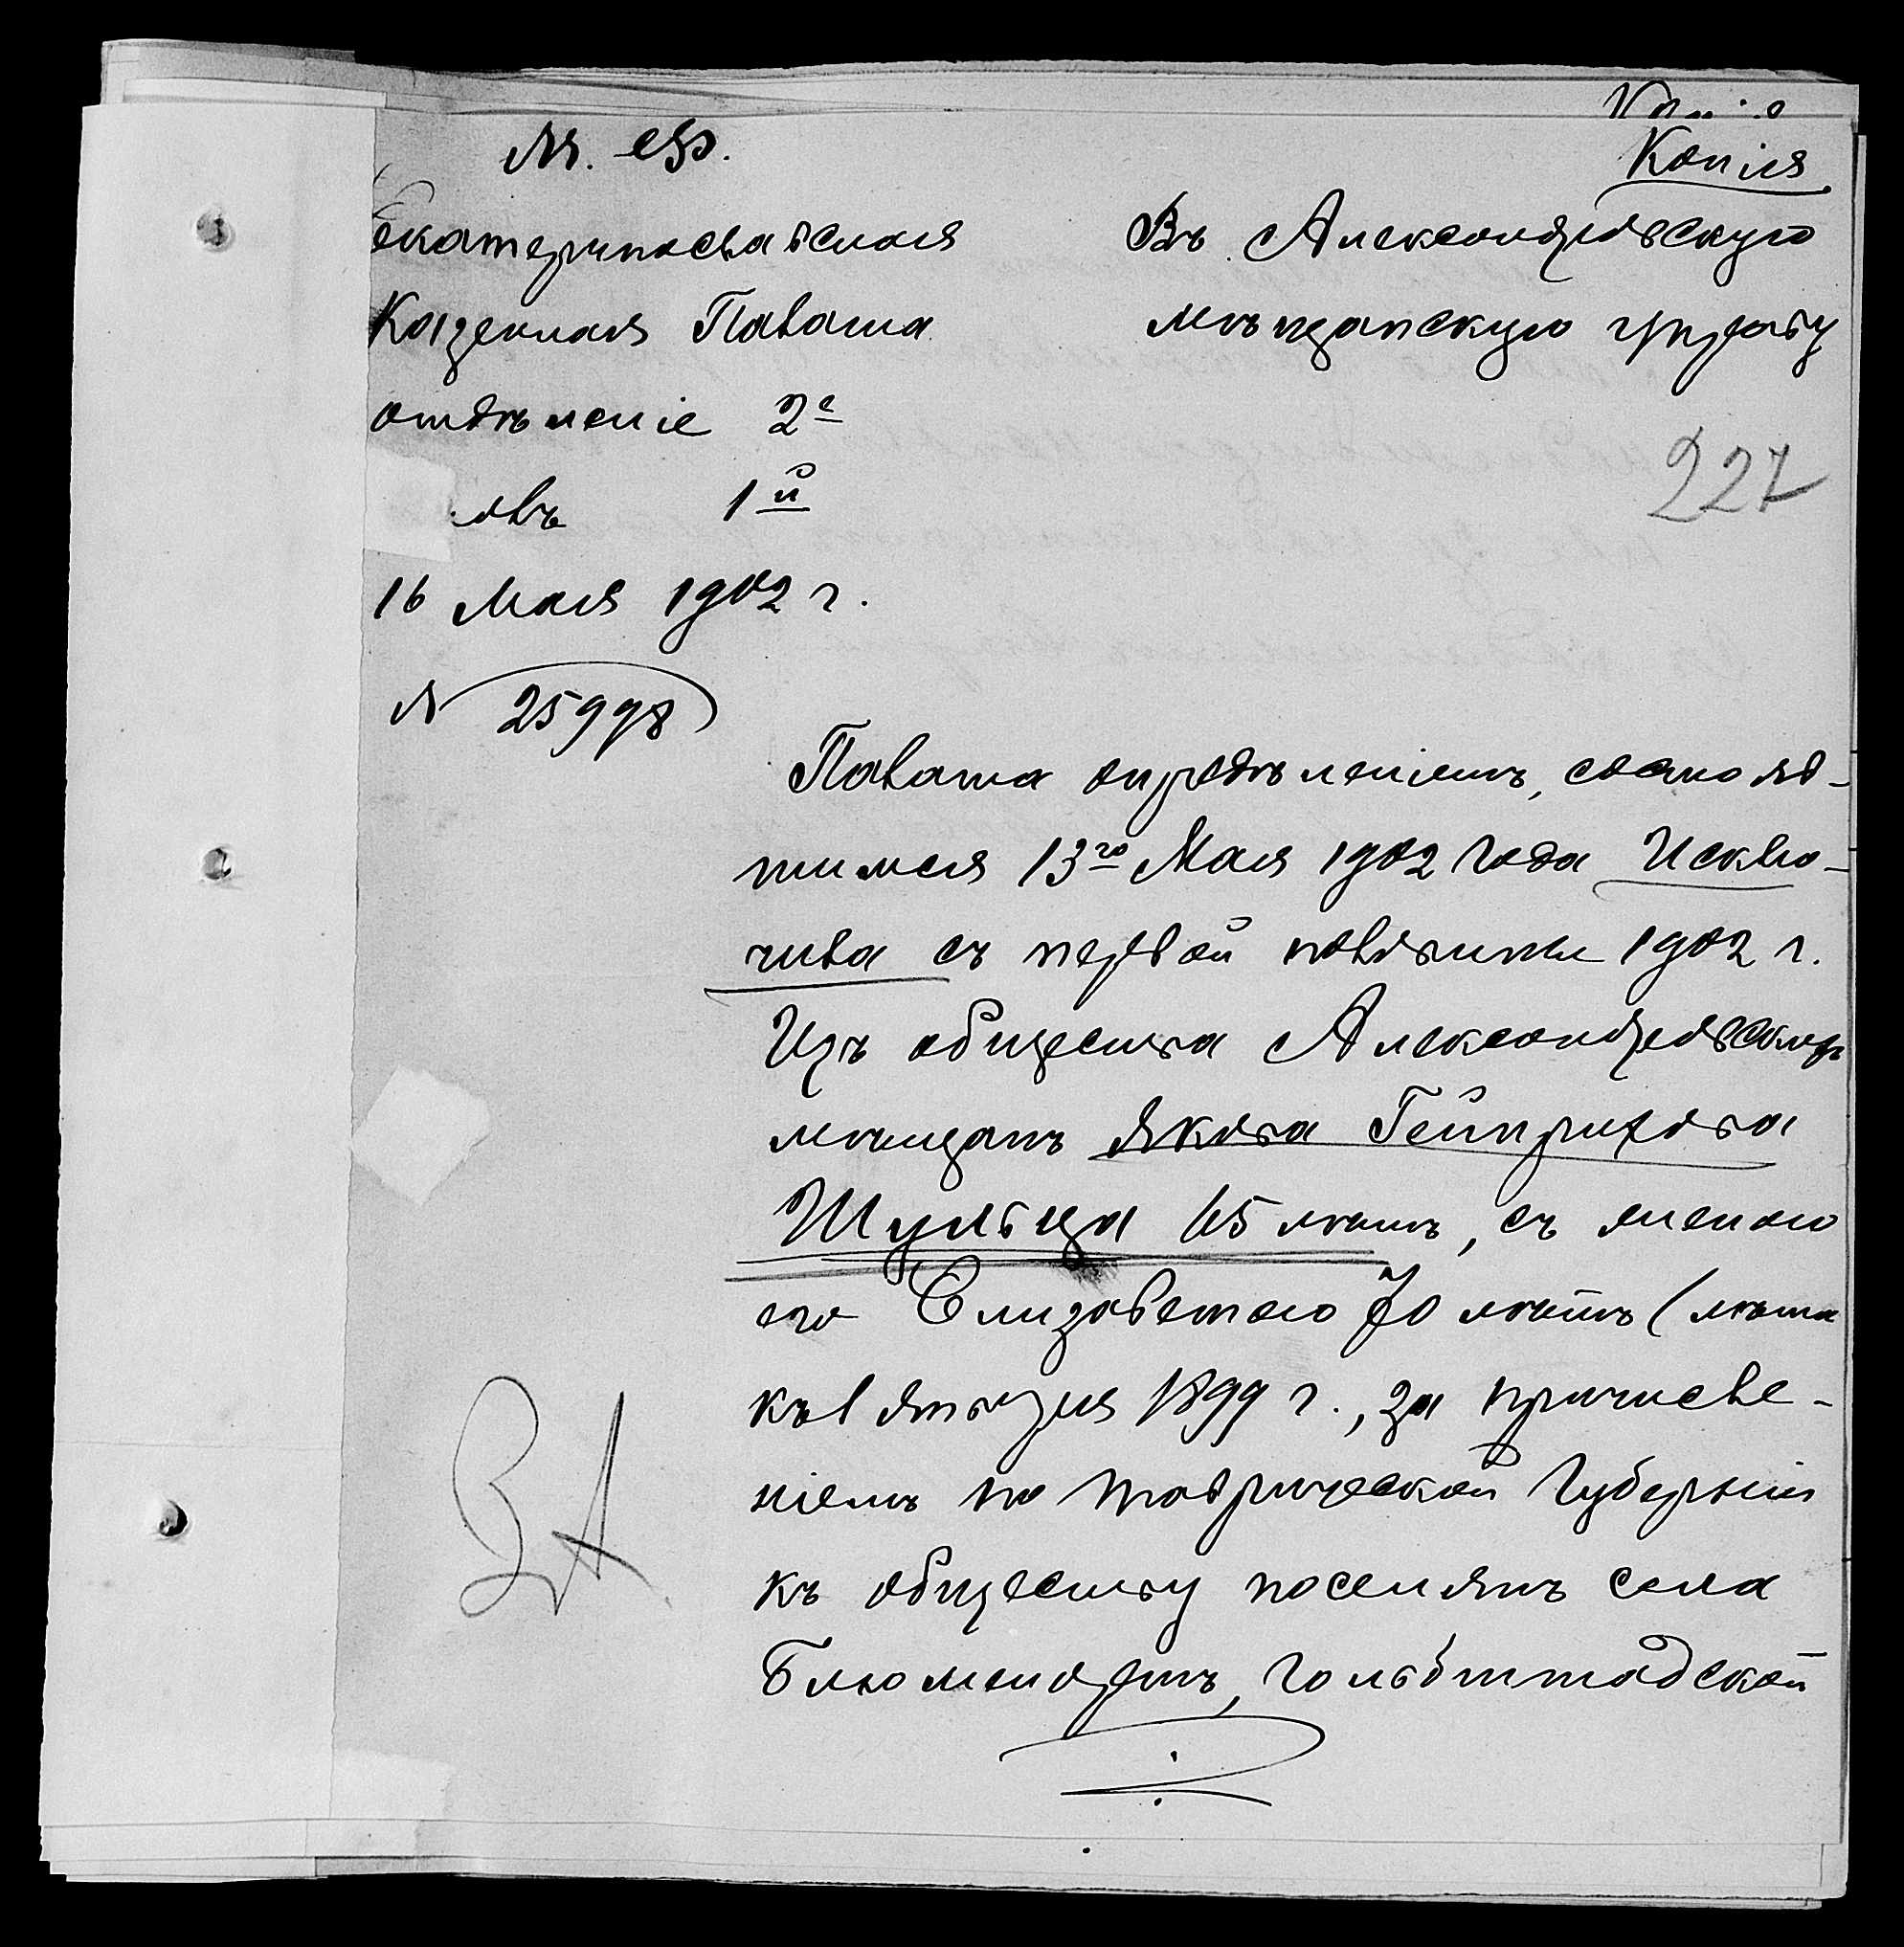 М. Ф.
Копія
Екатеринославская
Казенная Палата
отдѣленіе 2е
1й
16 Мая 1902 г.
№ 25998
Въ Александровскую
мѣщанскую управу
227
Палата опредѣленіемъ, состояв-
шимся 13го Мая 1902 года Исклю-
чила съ первой половины 1902 г.
Изъ общества Александровскихъ
мѣщанъ Якова Гейнрихова
Шульца 65 лѣтъ, съ женою
его Елизаветою 70 лѣтъ (лѣта
къ 1 Января 1899 г., за причисле-
ніемъ по Таврической Губерніи
къ обществу поселянъ села
Блюменортъ, Гальбштадской